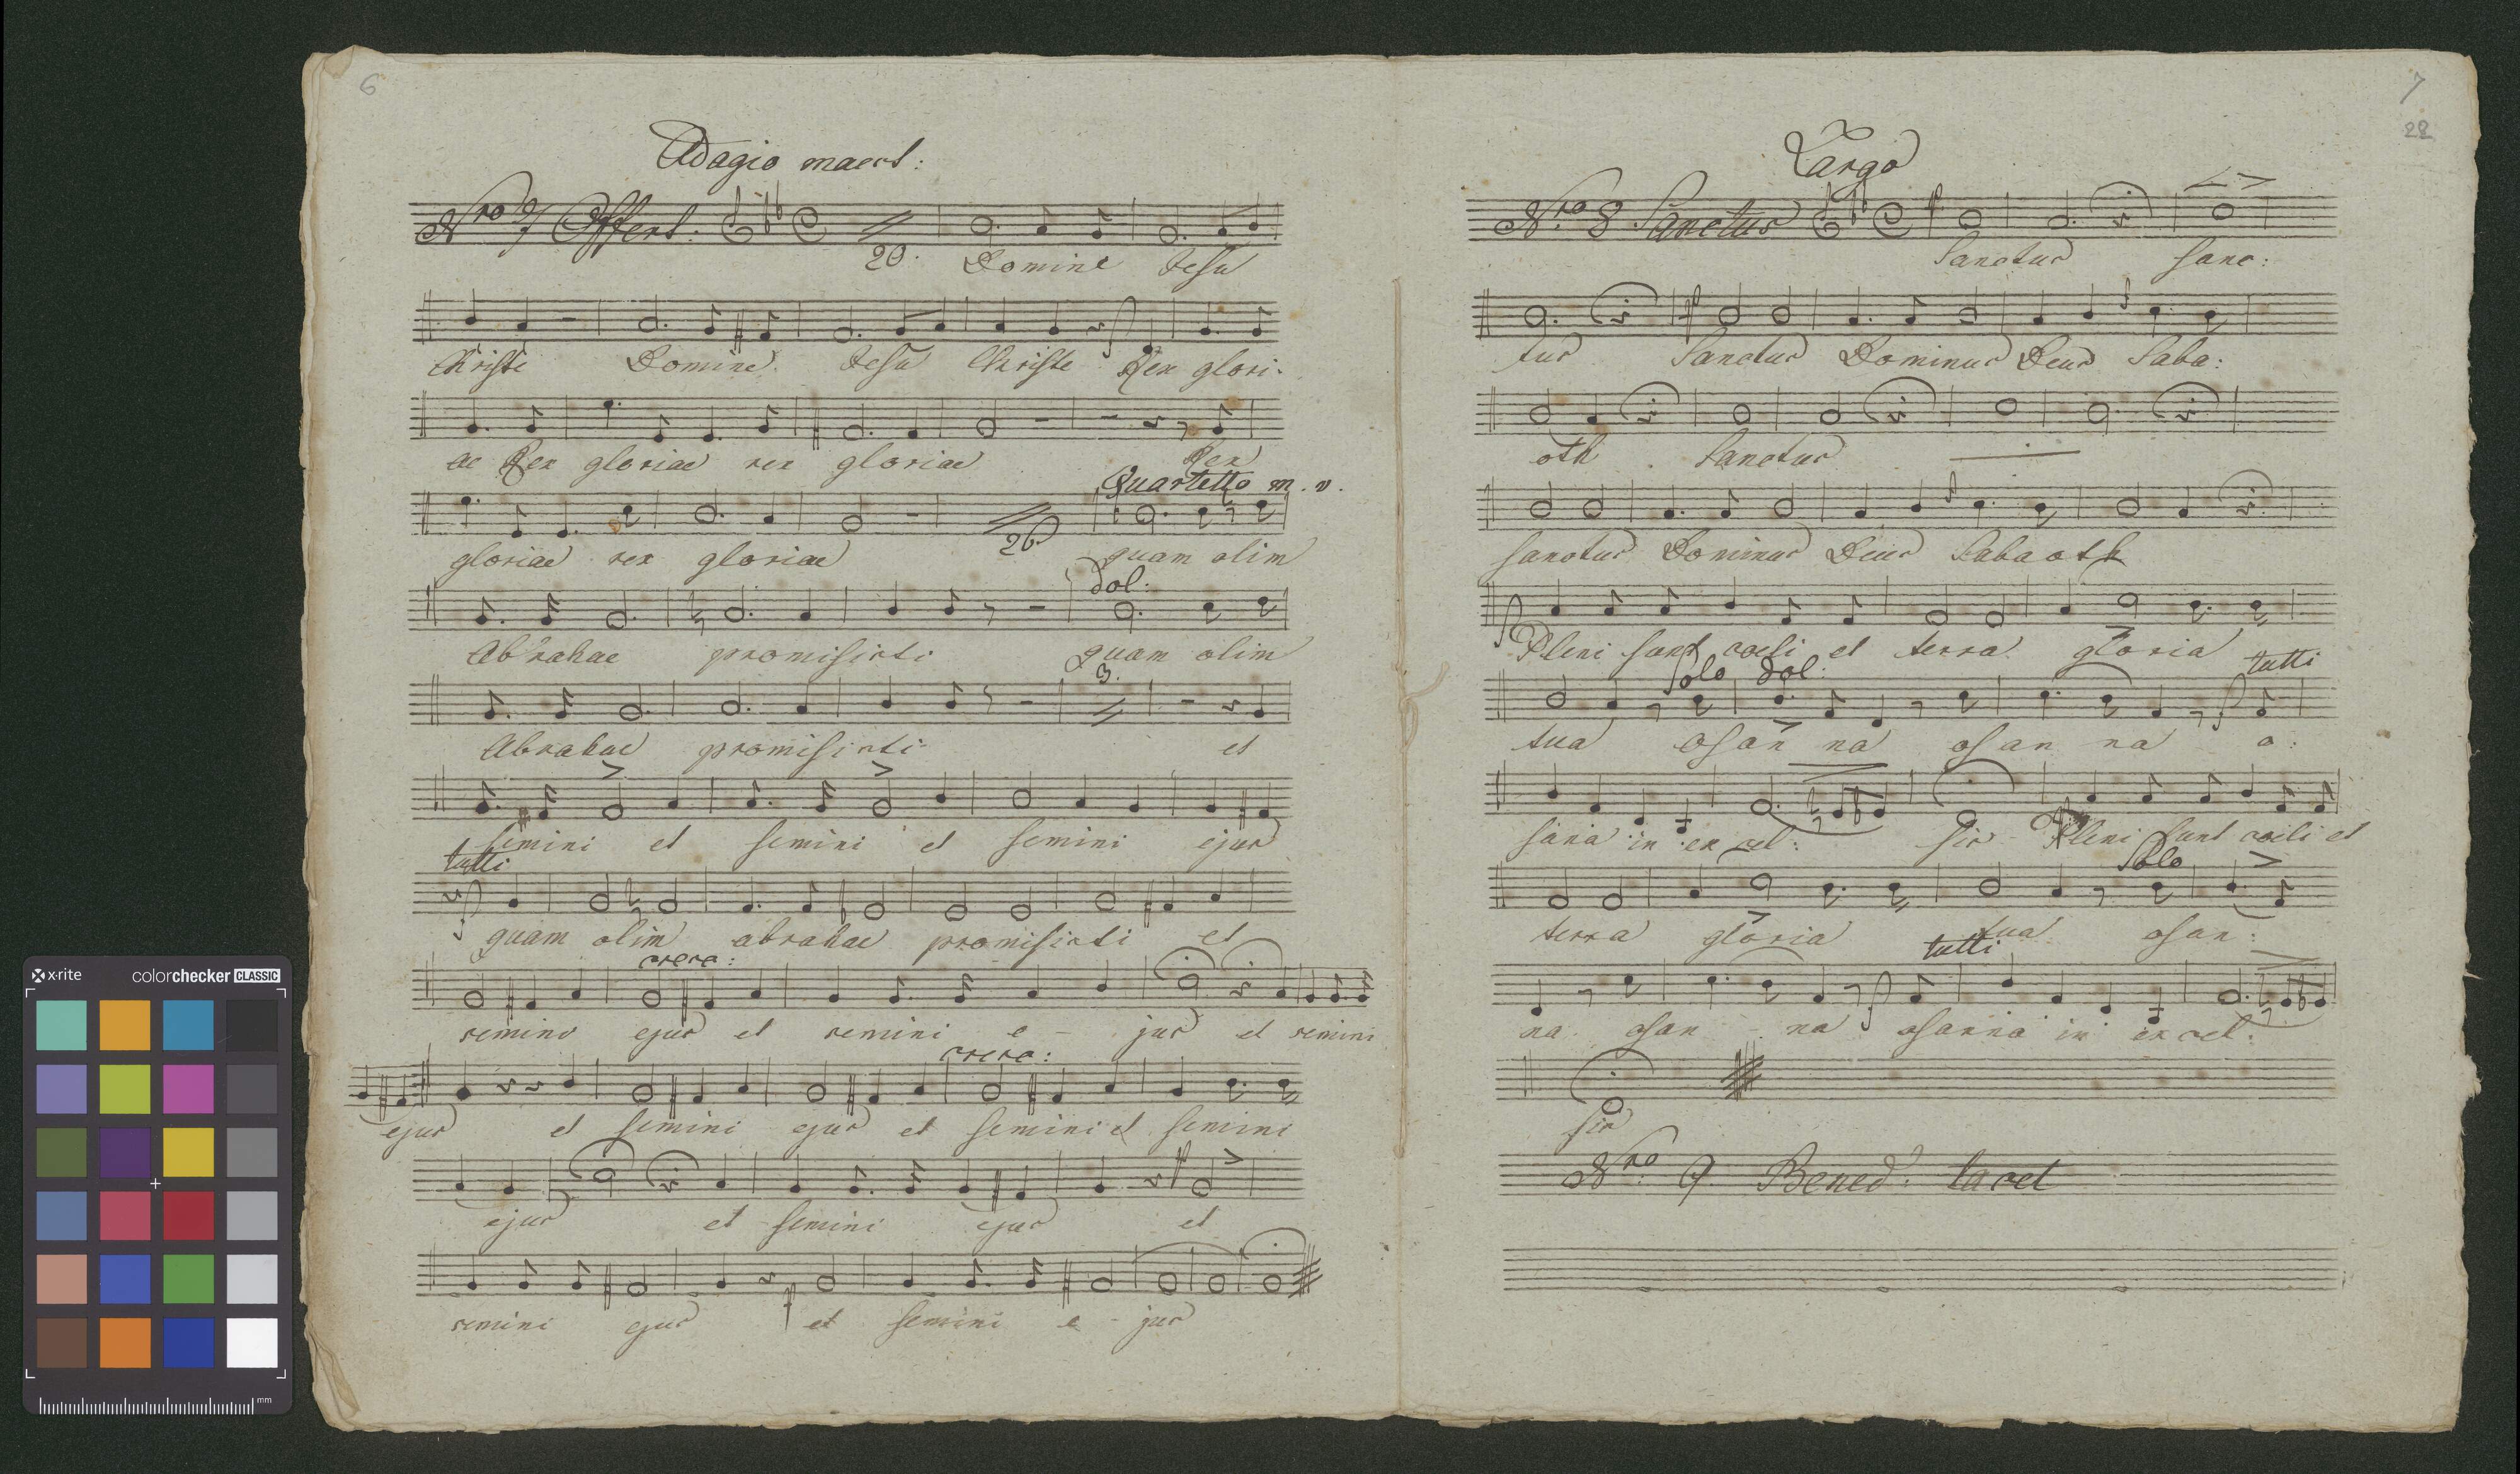 6
Adagio maest:
Nro 7 Offert:
20.
Domine Jesu
Christe Domine Jesu Christe Rex glori-
ae Rex gloriae rex gloriae Rex
Quartetto m. v.
26
gloriae rex gloriae quam olim
dol:
Abrahae promisisti quam olim
3.
Abrahae promisisti et
semini et semini et semini ejus
tutti
quam olim abrahae promisisti et
cresc:
semini ejus et semini e - jus et semini
cresc:
ejus et semini ejus et semini et semini
ejus et semini ejus et
semini ejus et semini e - jus
7
22
Largo
Nro 8 Sanctus
Sanctus sanc:
tus Sanctus Dominus Deus Saba:
oth Sanctus
sanctus Dominus Deus Sabaoth
Pleni sunt coeli et terra gloria
Solo dol: tutti
tua osan na osan na o:
sana in ex cel: sis Pleni sunt coeli et
Solo
terra gloria tua osan:
tutti
na osan - na osanna in ex cel:
sis
Nro 9 Bened: tacet
x-rite colorchecker CLASSIC
mm